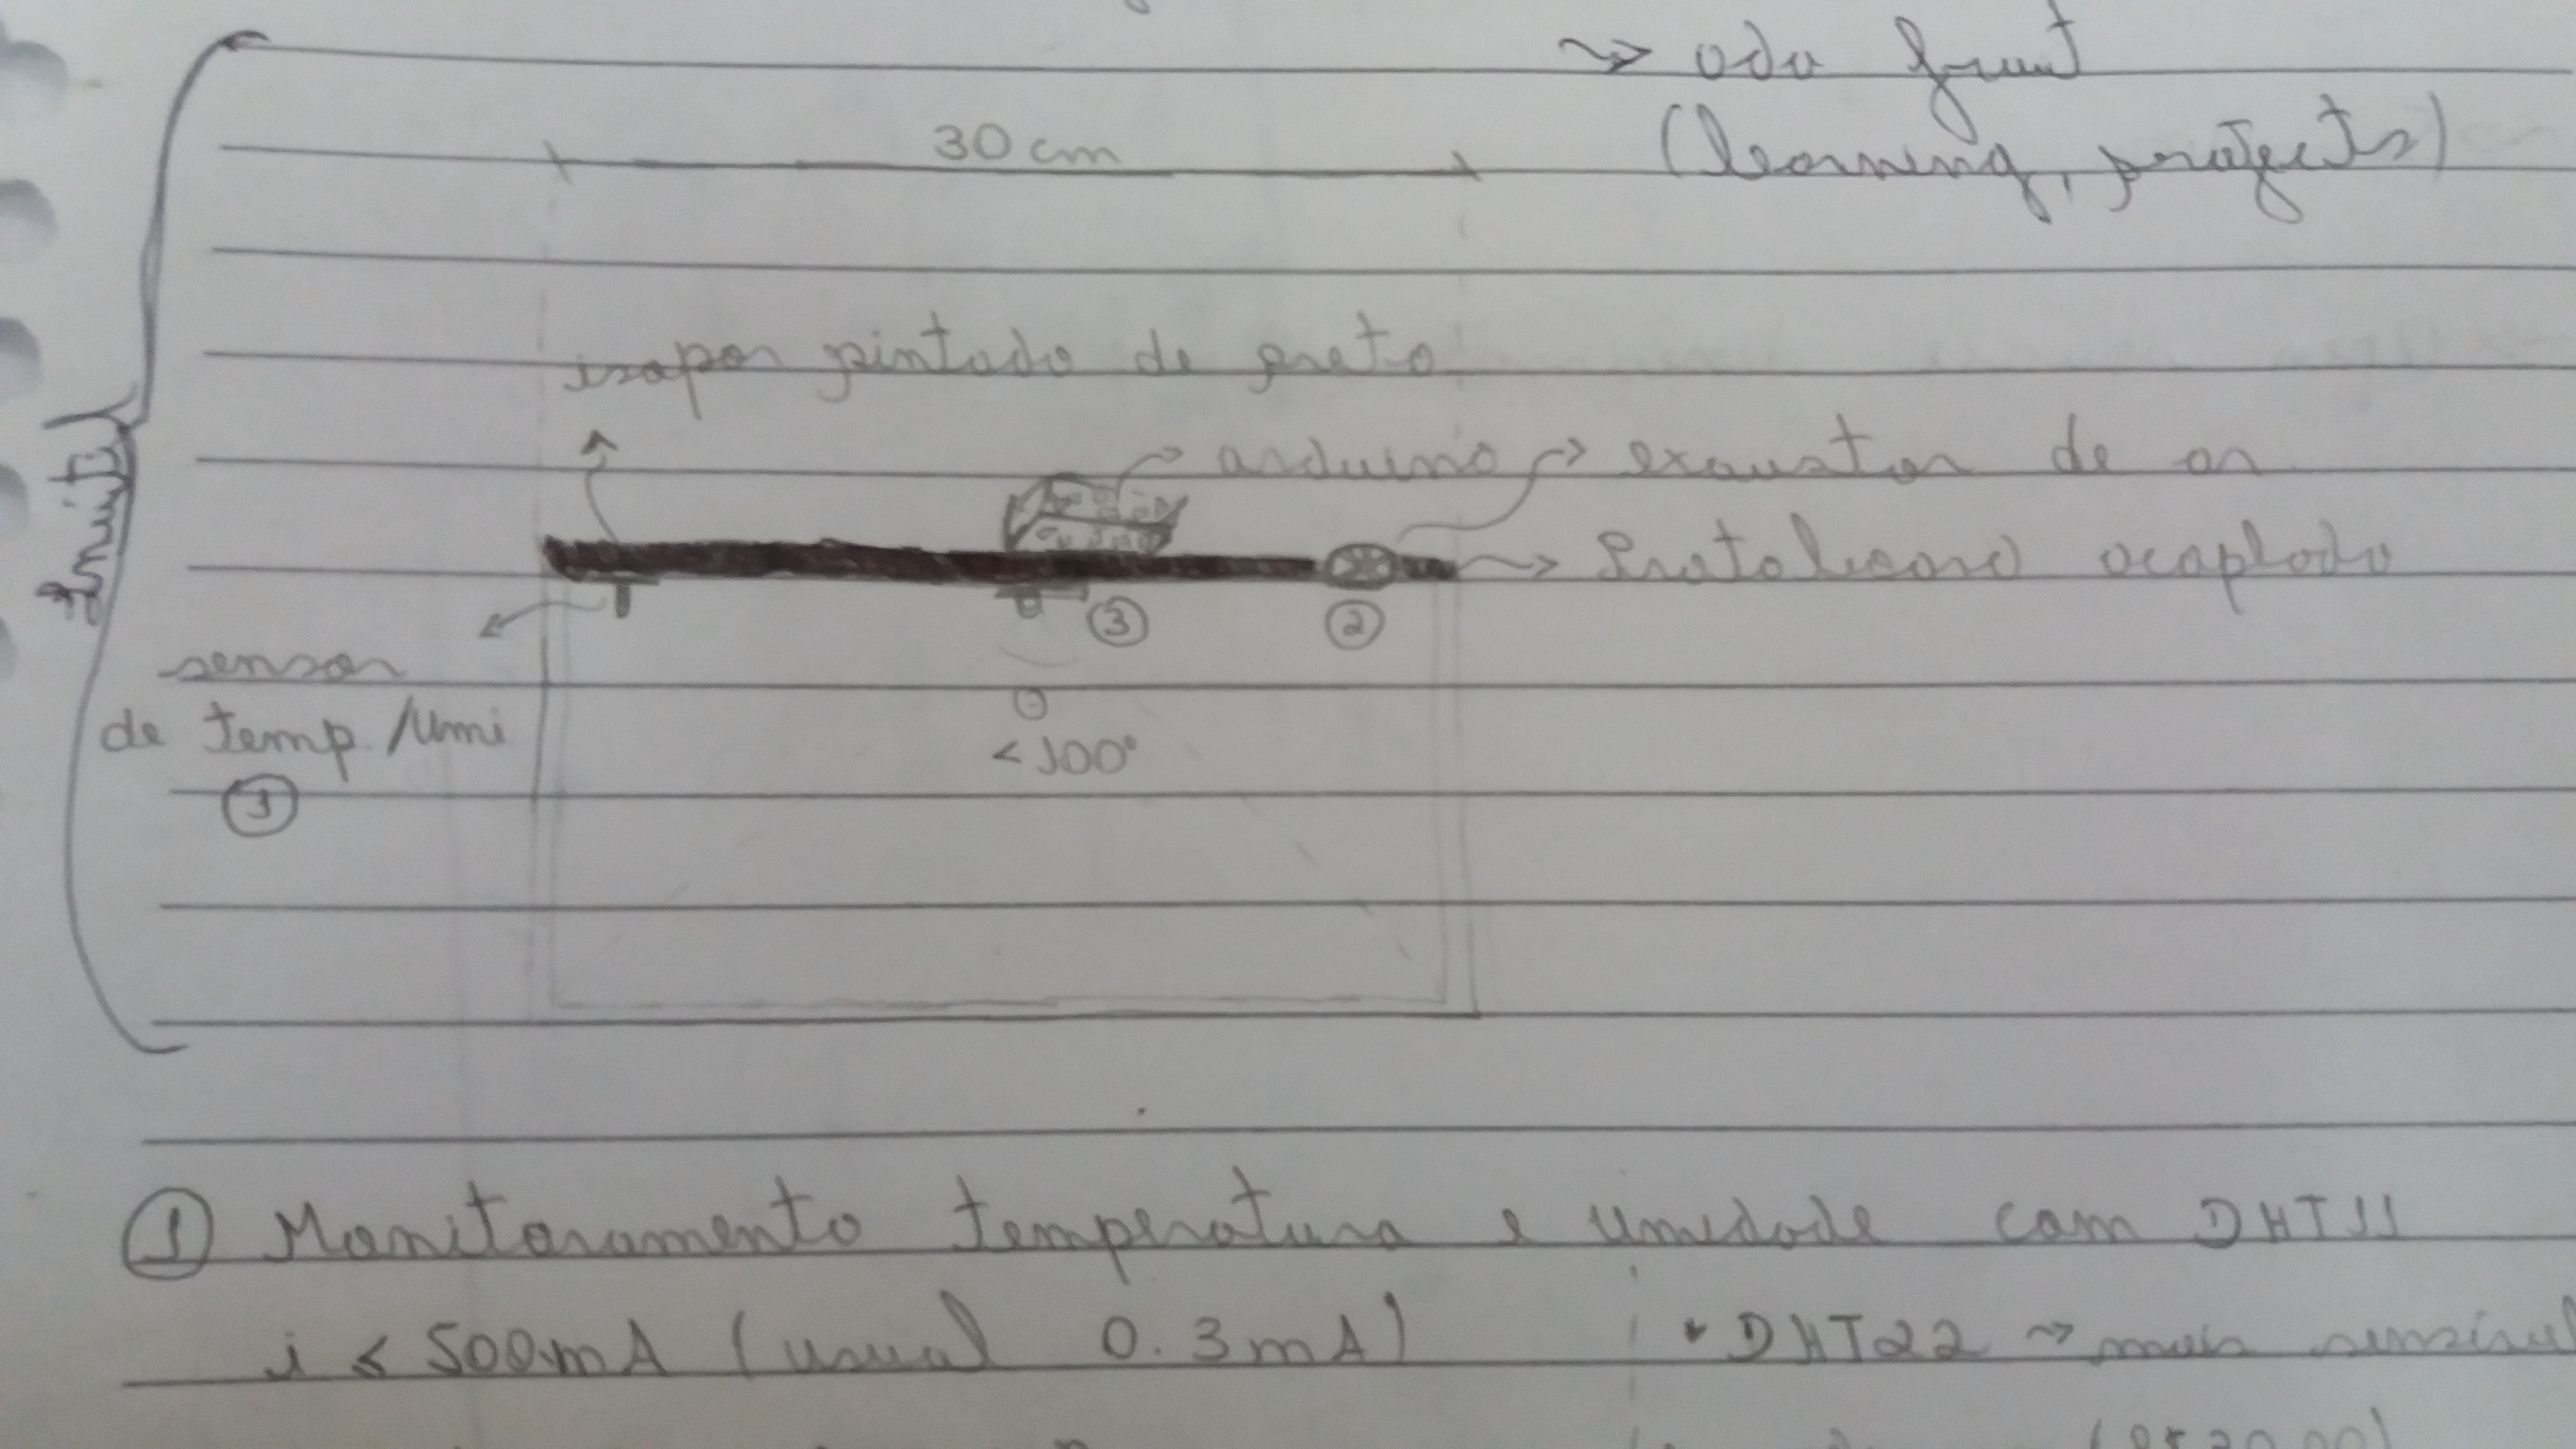 → ada fruit
(learning, projects)
30 cm
isopor pintado de preto
arduino → exaustor de ar
→ Protoboard acoplado
Inuit
③ ②
sensor
de temp./Umi
①
θ
< 100°
① Monitoramento temperatura e Umidade com DHT11
i < 500mA (usual 0.3mA)
• DHT22 → mais sensível